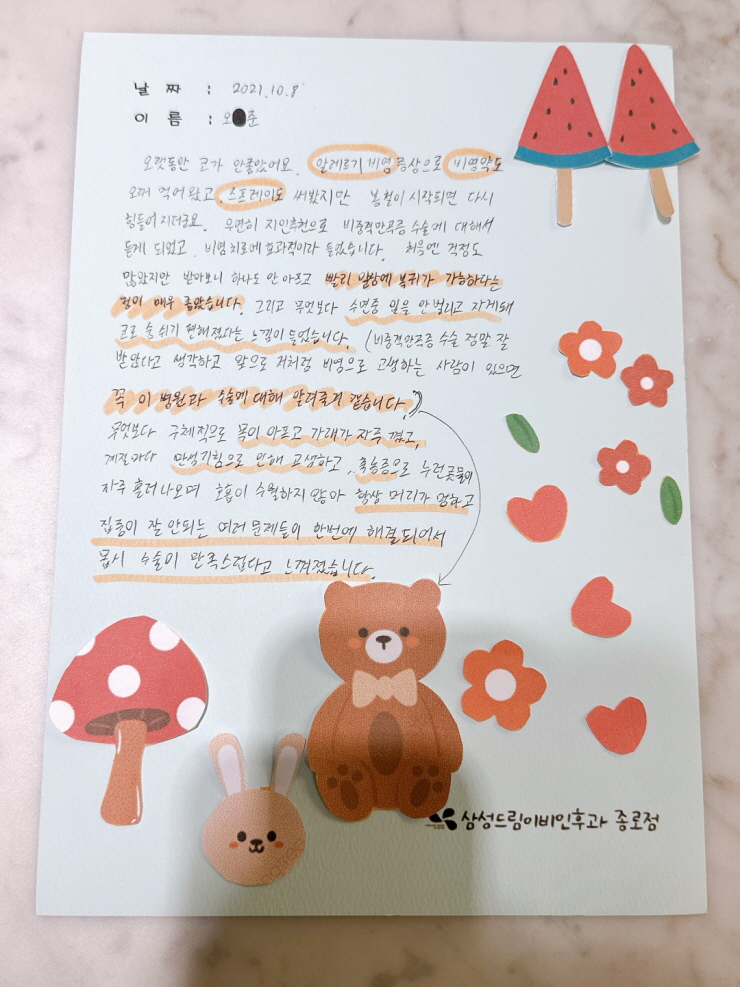 날 짜 : 2021.10.8
이 름 : 오 준
오랫동안 코가 안좋았어요. 알레르기 비염증상으로 비염약도
오래 먹어왔고, 스프레이도 써봤지만 봄철이 시작되면 다시
힘들어지더군요. 우연히 지인추천으로 비중격만곡증 수술에 대해서
듣게 되었고, 비염치료에 효과적이라 들었습니다. 처음엔 걱정도
많았지만 받아보니 하나도 안 아프고 빨리 일상에 복귀가 가능하다는
점이 매우 좋았습니다. 그리고 무엇보다 수면중 입을 안벌리고 자게돼
코로 숨 쉬기 편해졌다는 느낌이 들었습니다. (비중격만곡증 수술 정말 잘
받았다고 생각하고 앞으로 저처럼 비염으로 고생하는 사람이 있으면
꼭 이 병원과 수술에 대해 알려줄거 같습니다.)
무엇보다 구체적으로 목이 아프고 가래가 자주 꼈고,
계절마다 만성기침으로 인해 고생하고, 축농증으로 누런콧물이
자주 흘러나오며 호흡이 수월하지 않아 항상 머리가 멍하고
집중이 잘 안되는 여러 문제들이 한번에 해결되어서
몹시 수술이 만족스럽다고 느껴졌습니다.
삼성드림이비인후과 종로점